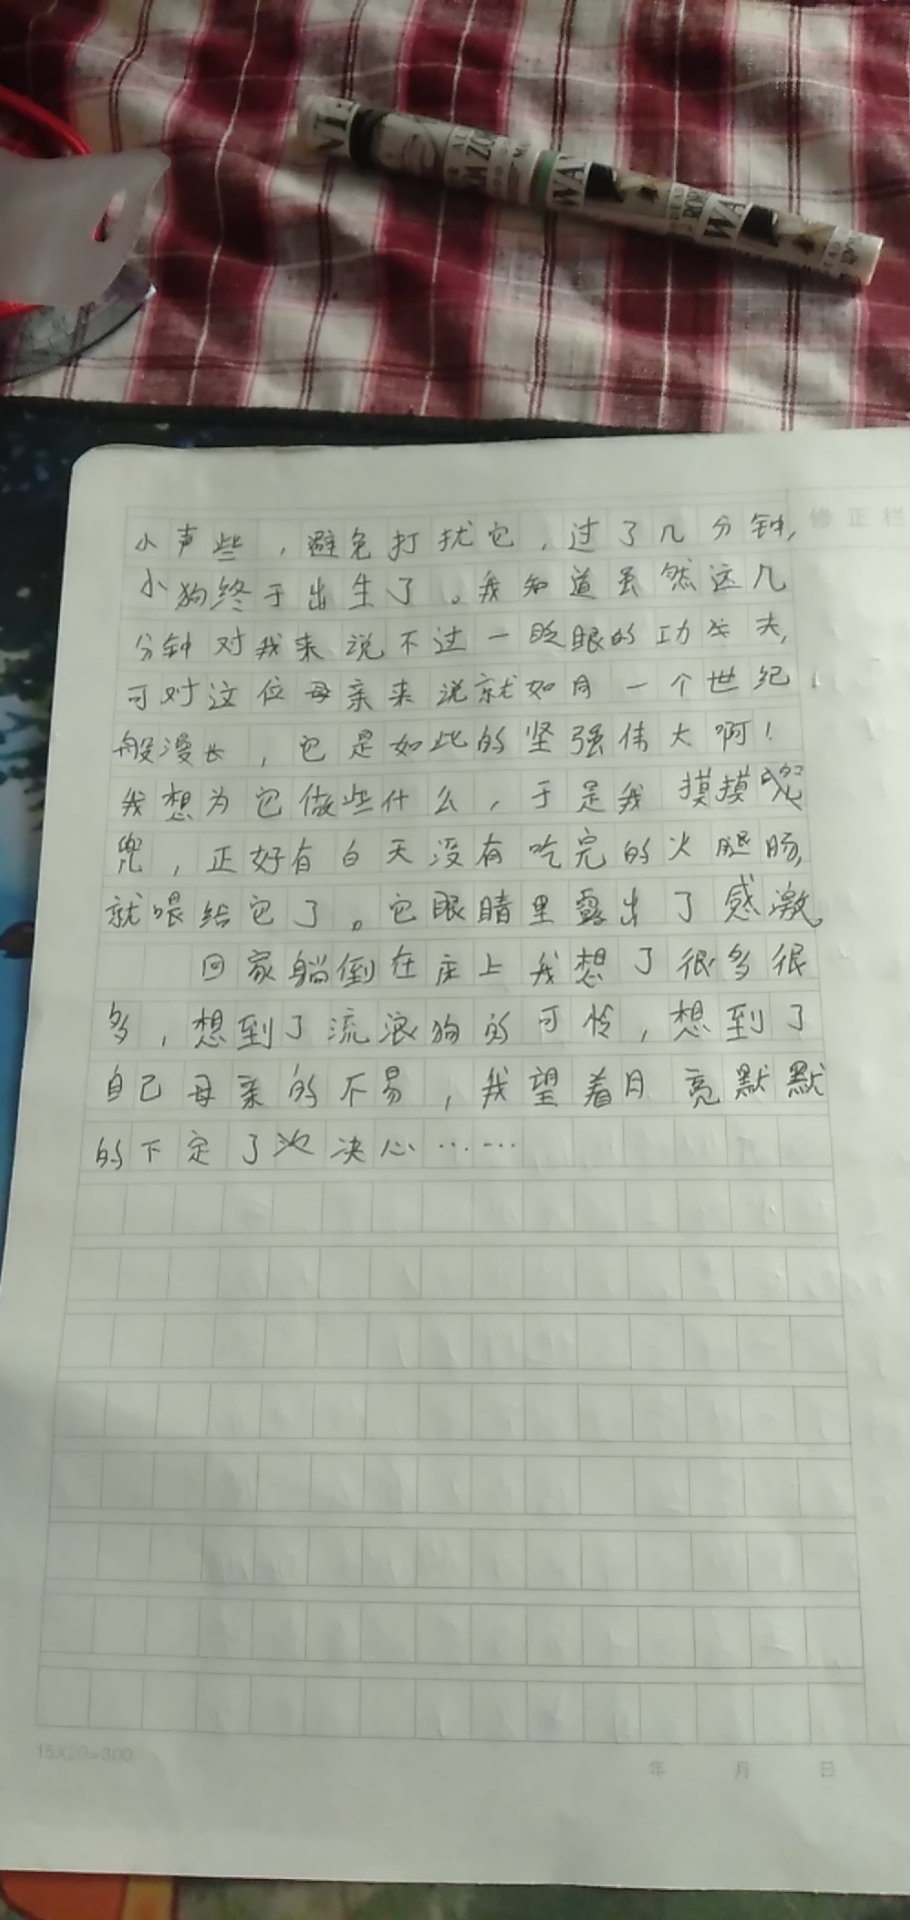 修正栏
小声些，避免打扰它，过了几分钟，
小狗终于出生了。我知道虽然这几
分钟对我来说不过一眨眼的功夫，
可对这位母亲来说就如同一个世纪
般漫长，它是如此的坚强伟大啊！
我想为它做些什么，于是我摸摸
兜，正好有白天没有吃完的火腿肠，
就喂给它了。它眼睛里露出了感激。
回家躺倒在床上我想了很多很
多，想到了流浪狗的可怜，想到了
自己母亲的不易，我望着月亮默默
的下定了决心……
15X20=300
年 月 日